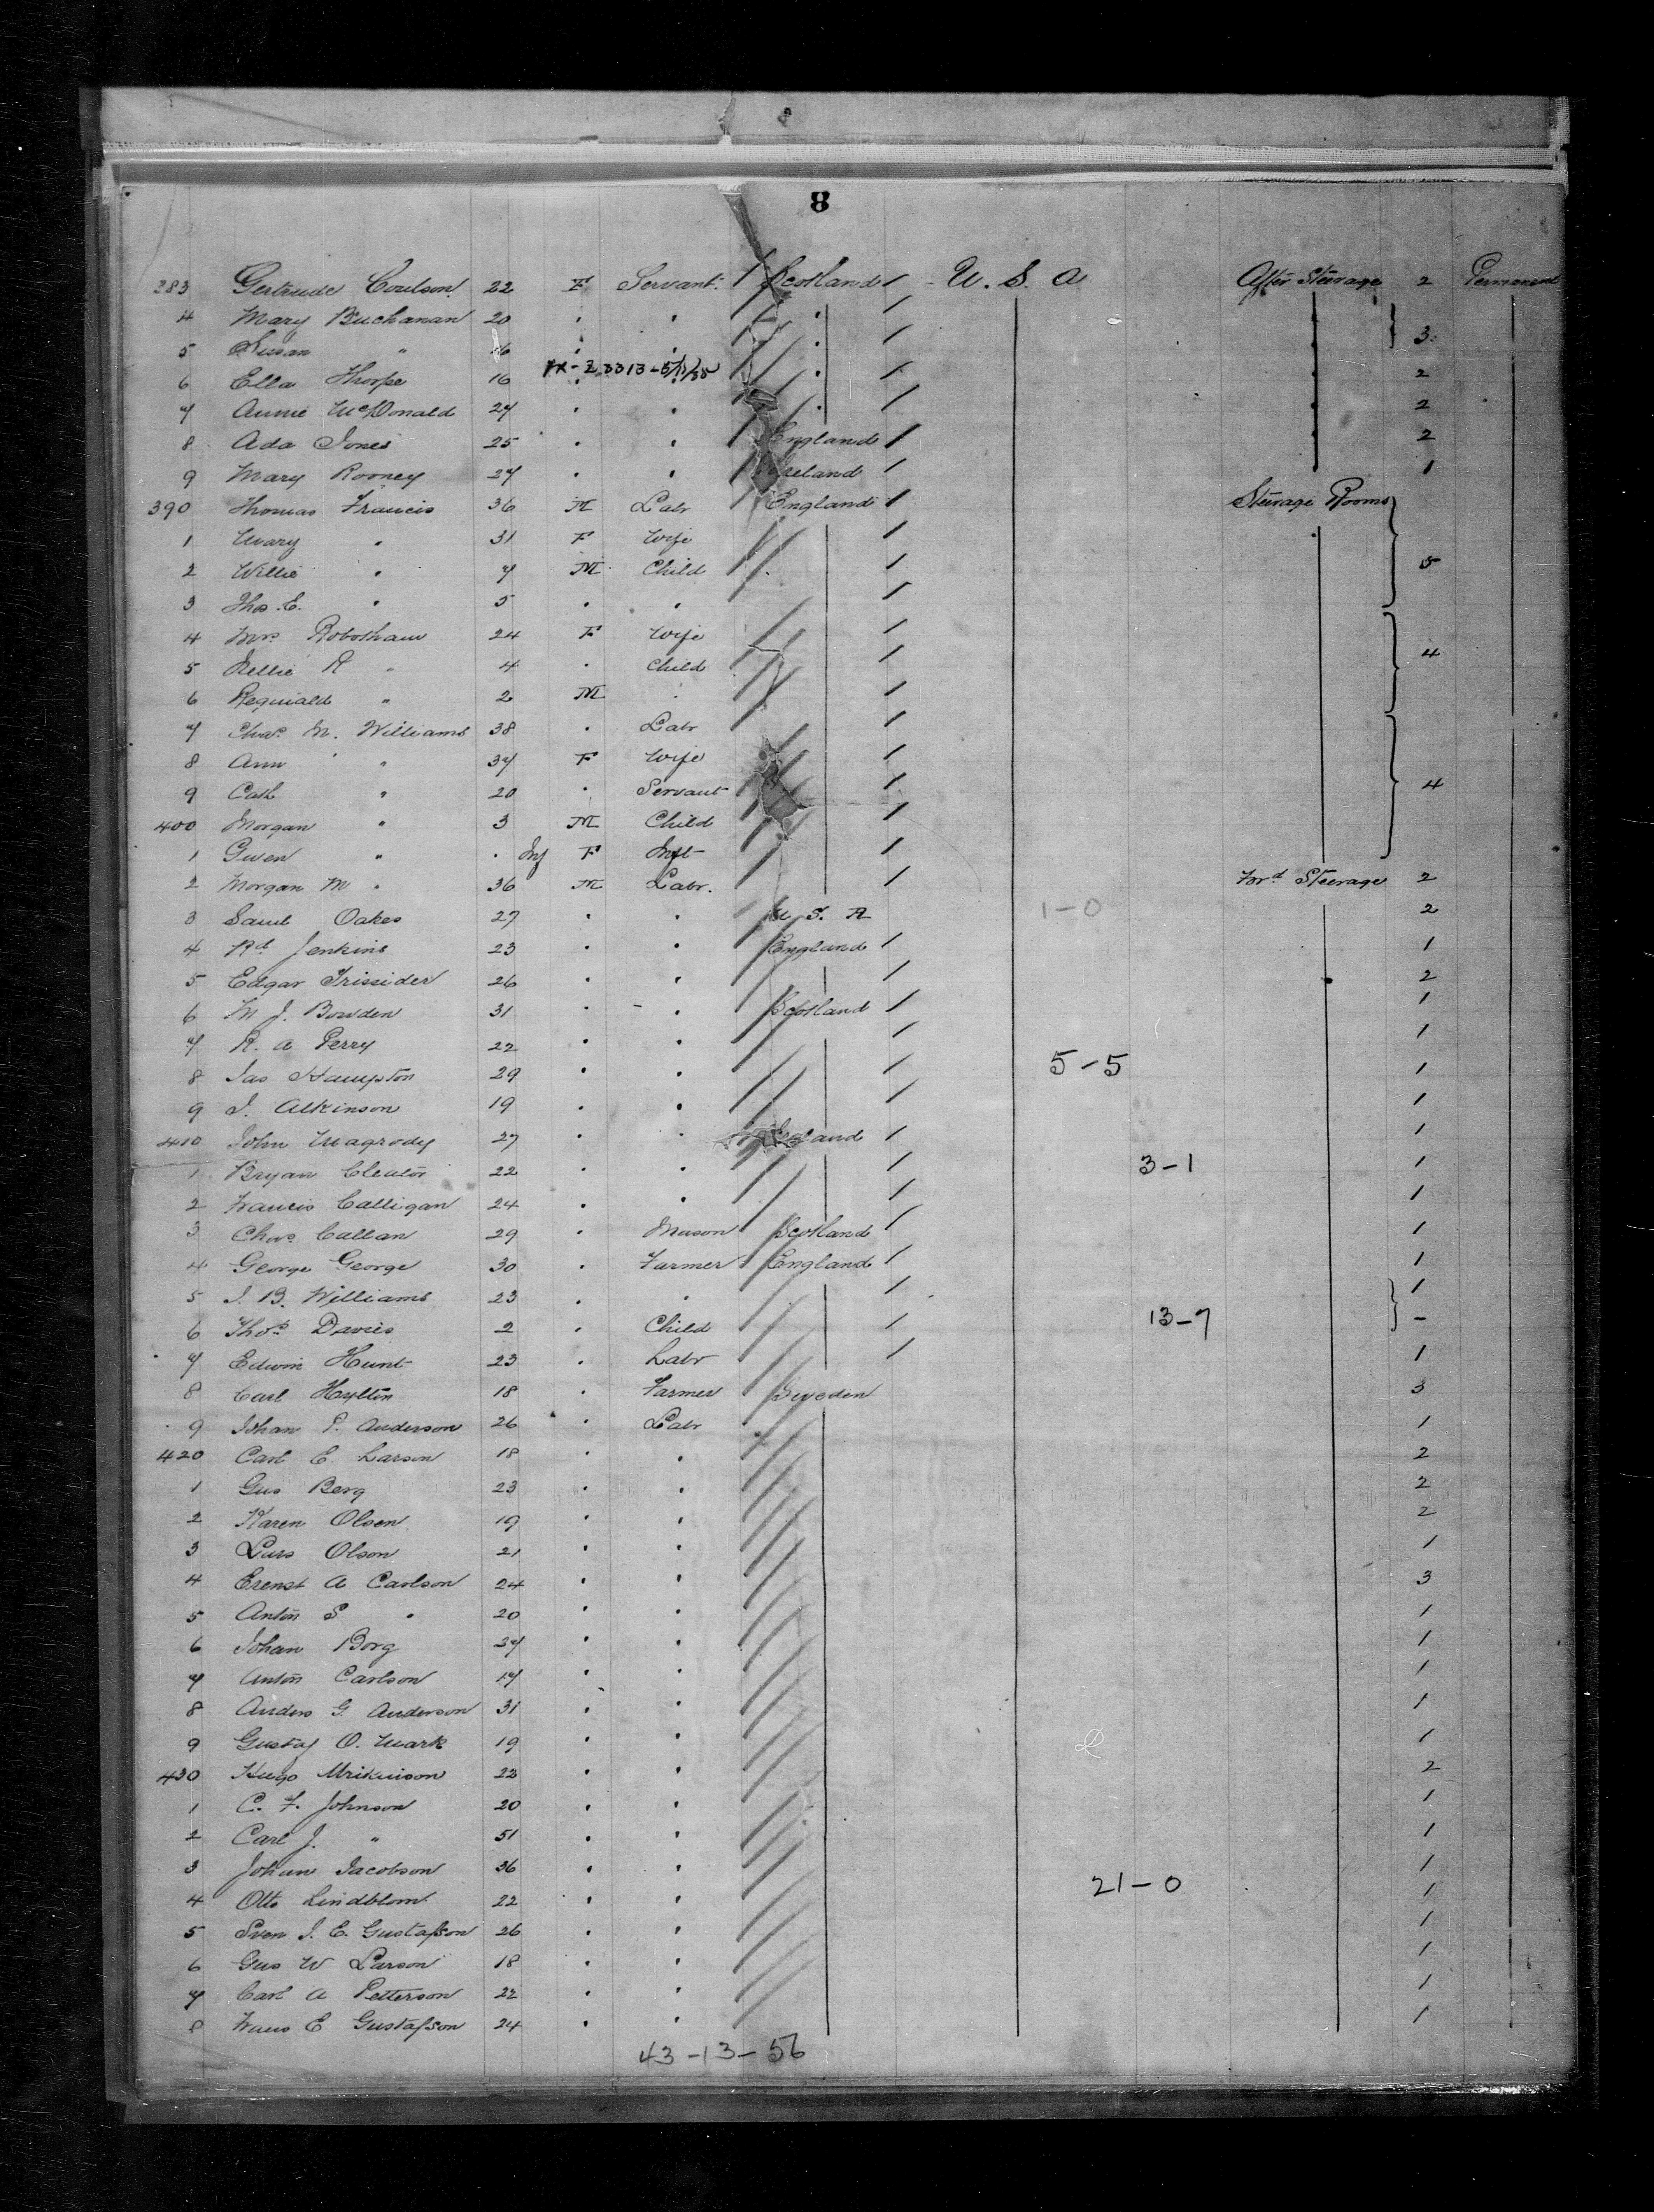 8
383 Gertrude Coulson 22 F Servant Scotland U. S. A After Steerage 2 Permanent
4 Mary Buchanan 20 " " " 3
5 Susan " 16 " " "
6 Ella Thorpe 16 " " " 2
7 Annie McDonald 27 " " " 2
8 Ada Jones 25 " " England 2
9 Mary Rooney 27 " " Ireland 1
390 Thomas Francis 36 M Labr England Steerage Rooms
1 Mary " 31 F Wife
2 Willie " 7 M Child 5
3 Thos. E. " 5 " "
4 Mrs Robotham 24 F Wife
5 Nellie R " 4 " Child 4
6 Reginald " 2 M "
7 Chas. M. Williams 38 " Labr
8 Ann " 37 F Wife
9 Cath " 20 " Servant 4
400 Morgan " 3 M Child
1 Gwen " Inf F Inft
2 Morgan M " 36 M Labr. Frd Steerage 2
3 Saml Oakes 27 " " U S. A 1-0 2
4 Rd Jenkins 23 " " England 1
5 Edgar Trissider 26 " " 2
6 M J. Bowden 31 " " Scotland 1
7 R. A Perry 22 " " 1
8 Jas Hampton 29 " " 5-5 1
9 J. Atkinson 19 " " 1
410 John Magrody 27 " " 1
1 Bryan Cleator 22 " " 3-1 1
2 Francis Calligan 24 " " 1
3 Chas Callan 29 " Mason Scotland 1
4 George George 30 " Farmer England 1
5 J. B. Williams 23 " " 1
6 Thos. Davies 2 " Child 13-7 -
7 Edwin Hunt 23 " Labr 1
8 Carl Hylton 18 " Farmer Sweden 3
9 Johan P. Anderson 26 " Labr 1
420 Carl E. Larson 18 " " 2
1 Gus Berg 23 " " 2
2 Karen Olsen 19 " " 2
3 Lars Olson 21 " " 1
4 Erenst A Carlson 24 " " 3
5 Anton S " 20 " " 1
6 Johan Borg 27 " " 1
7 Anton Carlson 17 " " 1
8 Anders G. Anderson 31 " " 1
9 Gustaf O. Mark 19 " " 1
430 Hugo 22 " " 2
1 C. F. Johnson 20 " " 1
2 Carl J. " 51 " " 1
3 Johan Jacobson 36 " " 1
4 Otto Lindblom 22 " " 21-0 1
5 Sven J. E. Gustafson 26 " " 1
6 Gus W Larson 18 " " 1
7 Carl A Petterson 22 " " 1
8 Frans E Gustafson 24 " " 1
43-13-56